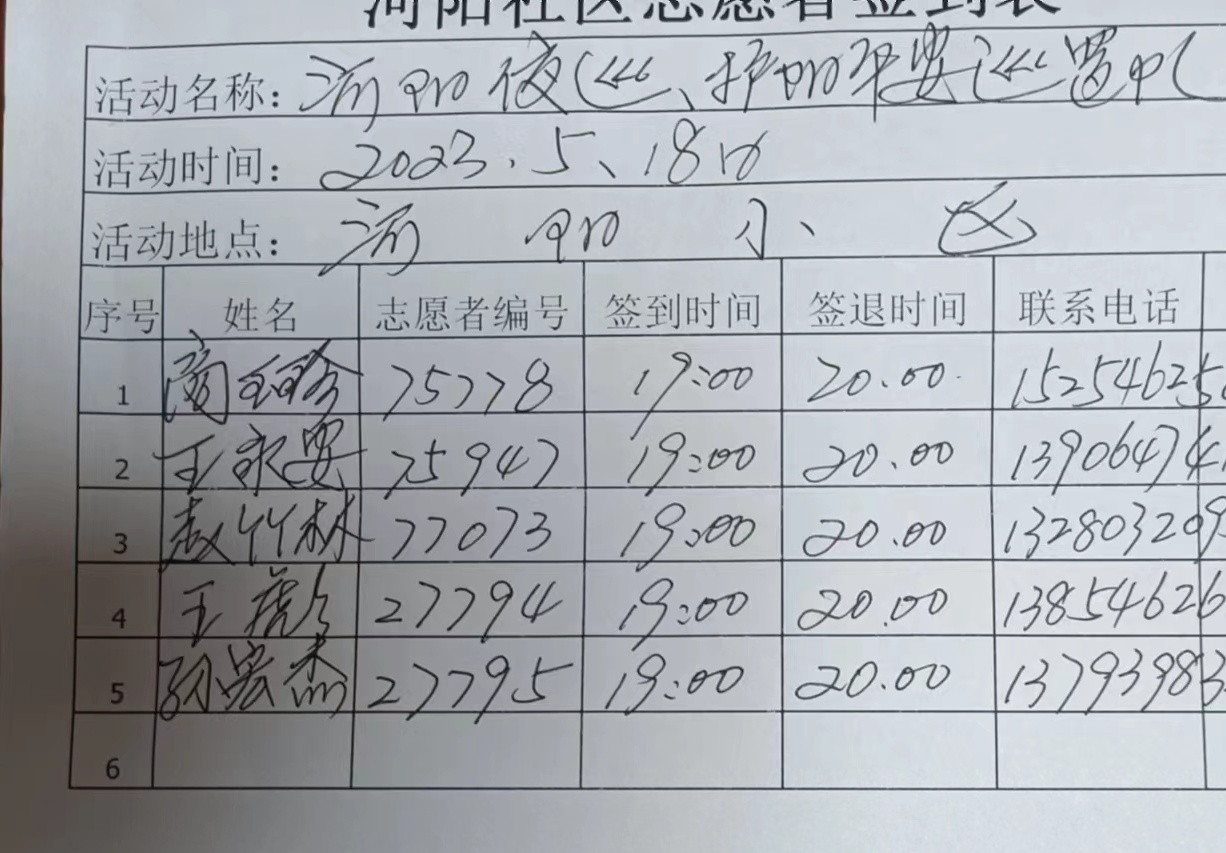 河阳社区志愿者签到表
活动名称：河阳夜巡、护阳平安巡逻队
活动时间：2023.5、18日
活动地点：河 阳 小 区
序号 姓名 志愿者编号 签到时间 签退时间 联系电话
1 75778 19:00 20.00 15254625
2 王永安 75947 19:00 20.00 13906474
3 赵竹林 77073 19:00 20.00 132803209
4 王 27794 19:00 20.00 13854626
5 孙宏杰 27795 19:00 20.00 13793983
6